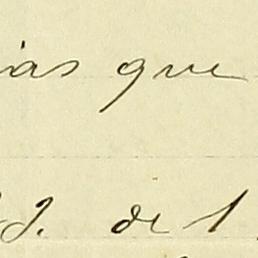 ias que
J. de 1